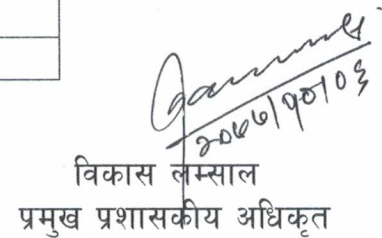 २०७७/१०/०६
विकास लम्साल
प्रमुख प्रशासकीय अधिकृत